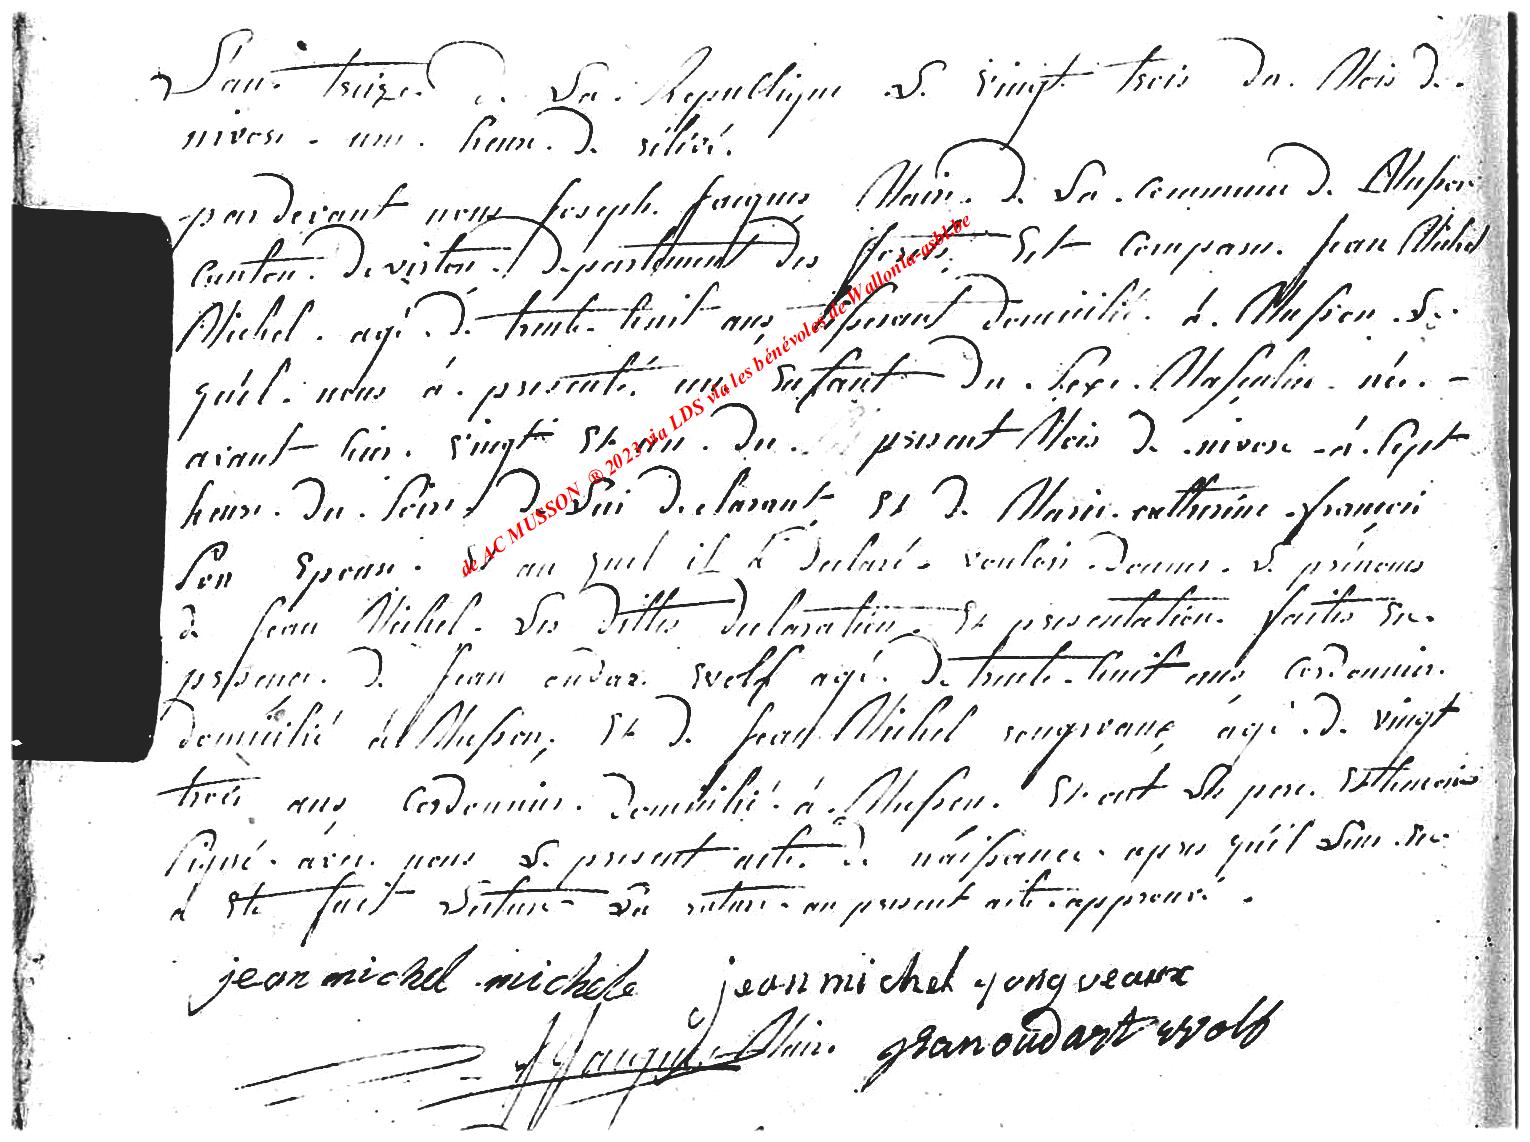 L'an treize de La Republique Le vingt trois du Mois de
nivose une heure de rélévé.
par devant nous Joseph Jacques Maire de La commune de Musson
canton de virton departement dés forets, Est comparu Jean Michel
Michel agé de trente huit ans tisserant domicilié á Musson Le
quél nous á presenté un Enfant du Sexe Masculin née
avant hier vingt Et un du present Mois de nivose á Sept
heure du Soire de Lui declarant Et de Marie catherine françois
Son Epouse Et au quel il á declaré vouloir donner Le prénoms
de Jean Michel Les dittes declaration Et presentation faites En
presence de Jean oudar Wolf agé de trente huit ans cordonnier
domicilié á Musson, Et de Jean Michel yongveaux ágé de vingt
trois ans cordonnier domicilié á Musson Et ont Le pere Et temoins
Signé avec nous Le present acte de náissance apres quéil Leur En
a Ete fait Lecture La rature au present acte approuvé.
jean michel michele jean michel yongveaux
JJacques Maire jean oudart wolf
de AC MUSSON ® 2023 via LDS via les bénévoles de Wallonia-asbl.be